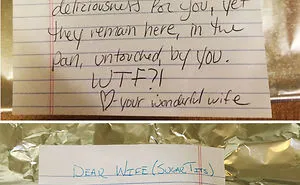 deliciousness for you, yet
they remain here, in the
pan, untouched, by you.
WTF?!
♡-your wonderful wife
DEAR WIFE (SUGAR TITS)